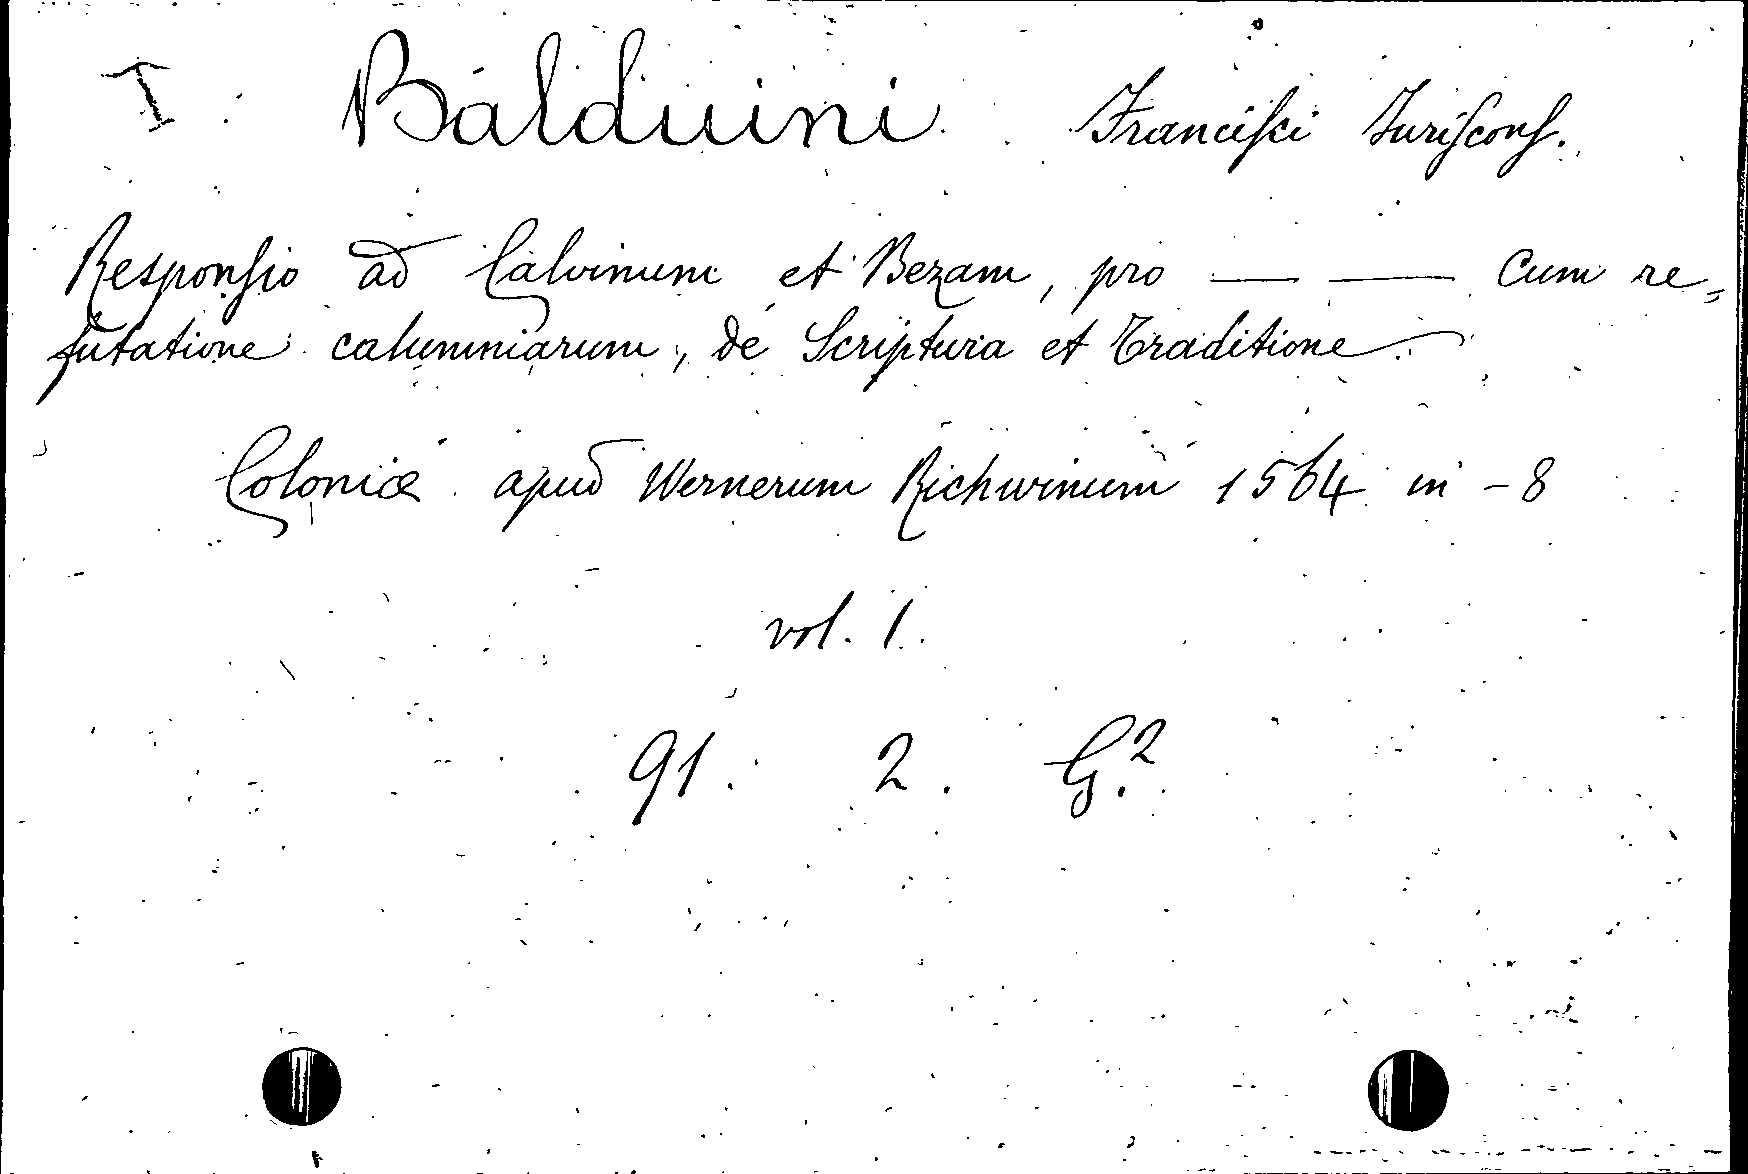 I Balduini Franciſci Juriſconſ.
Responſio ad Calvinum et Bezam, pro — — Cum re=
futatione calumniarum, de Scriptura et Traditione
Coloniæ apud Wernerum Richwinum 1564 in -8
vol. 1.
91. 2. G.²